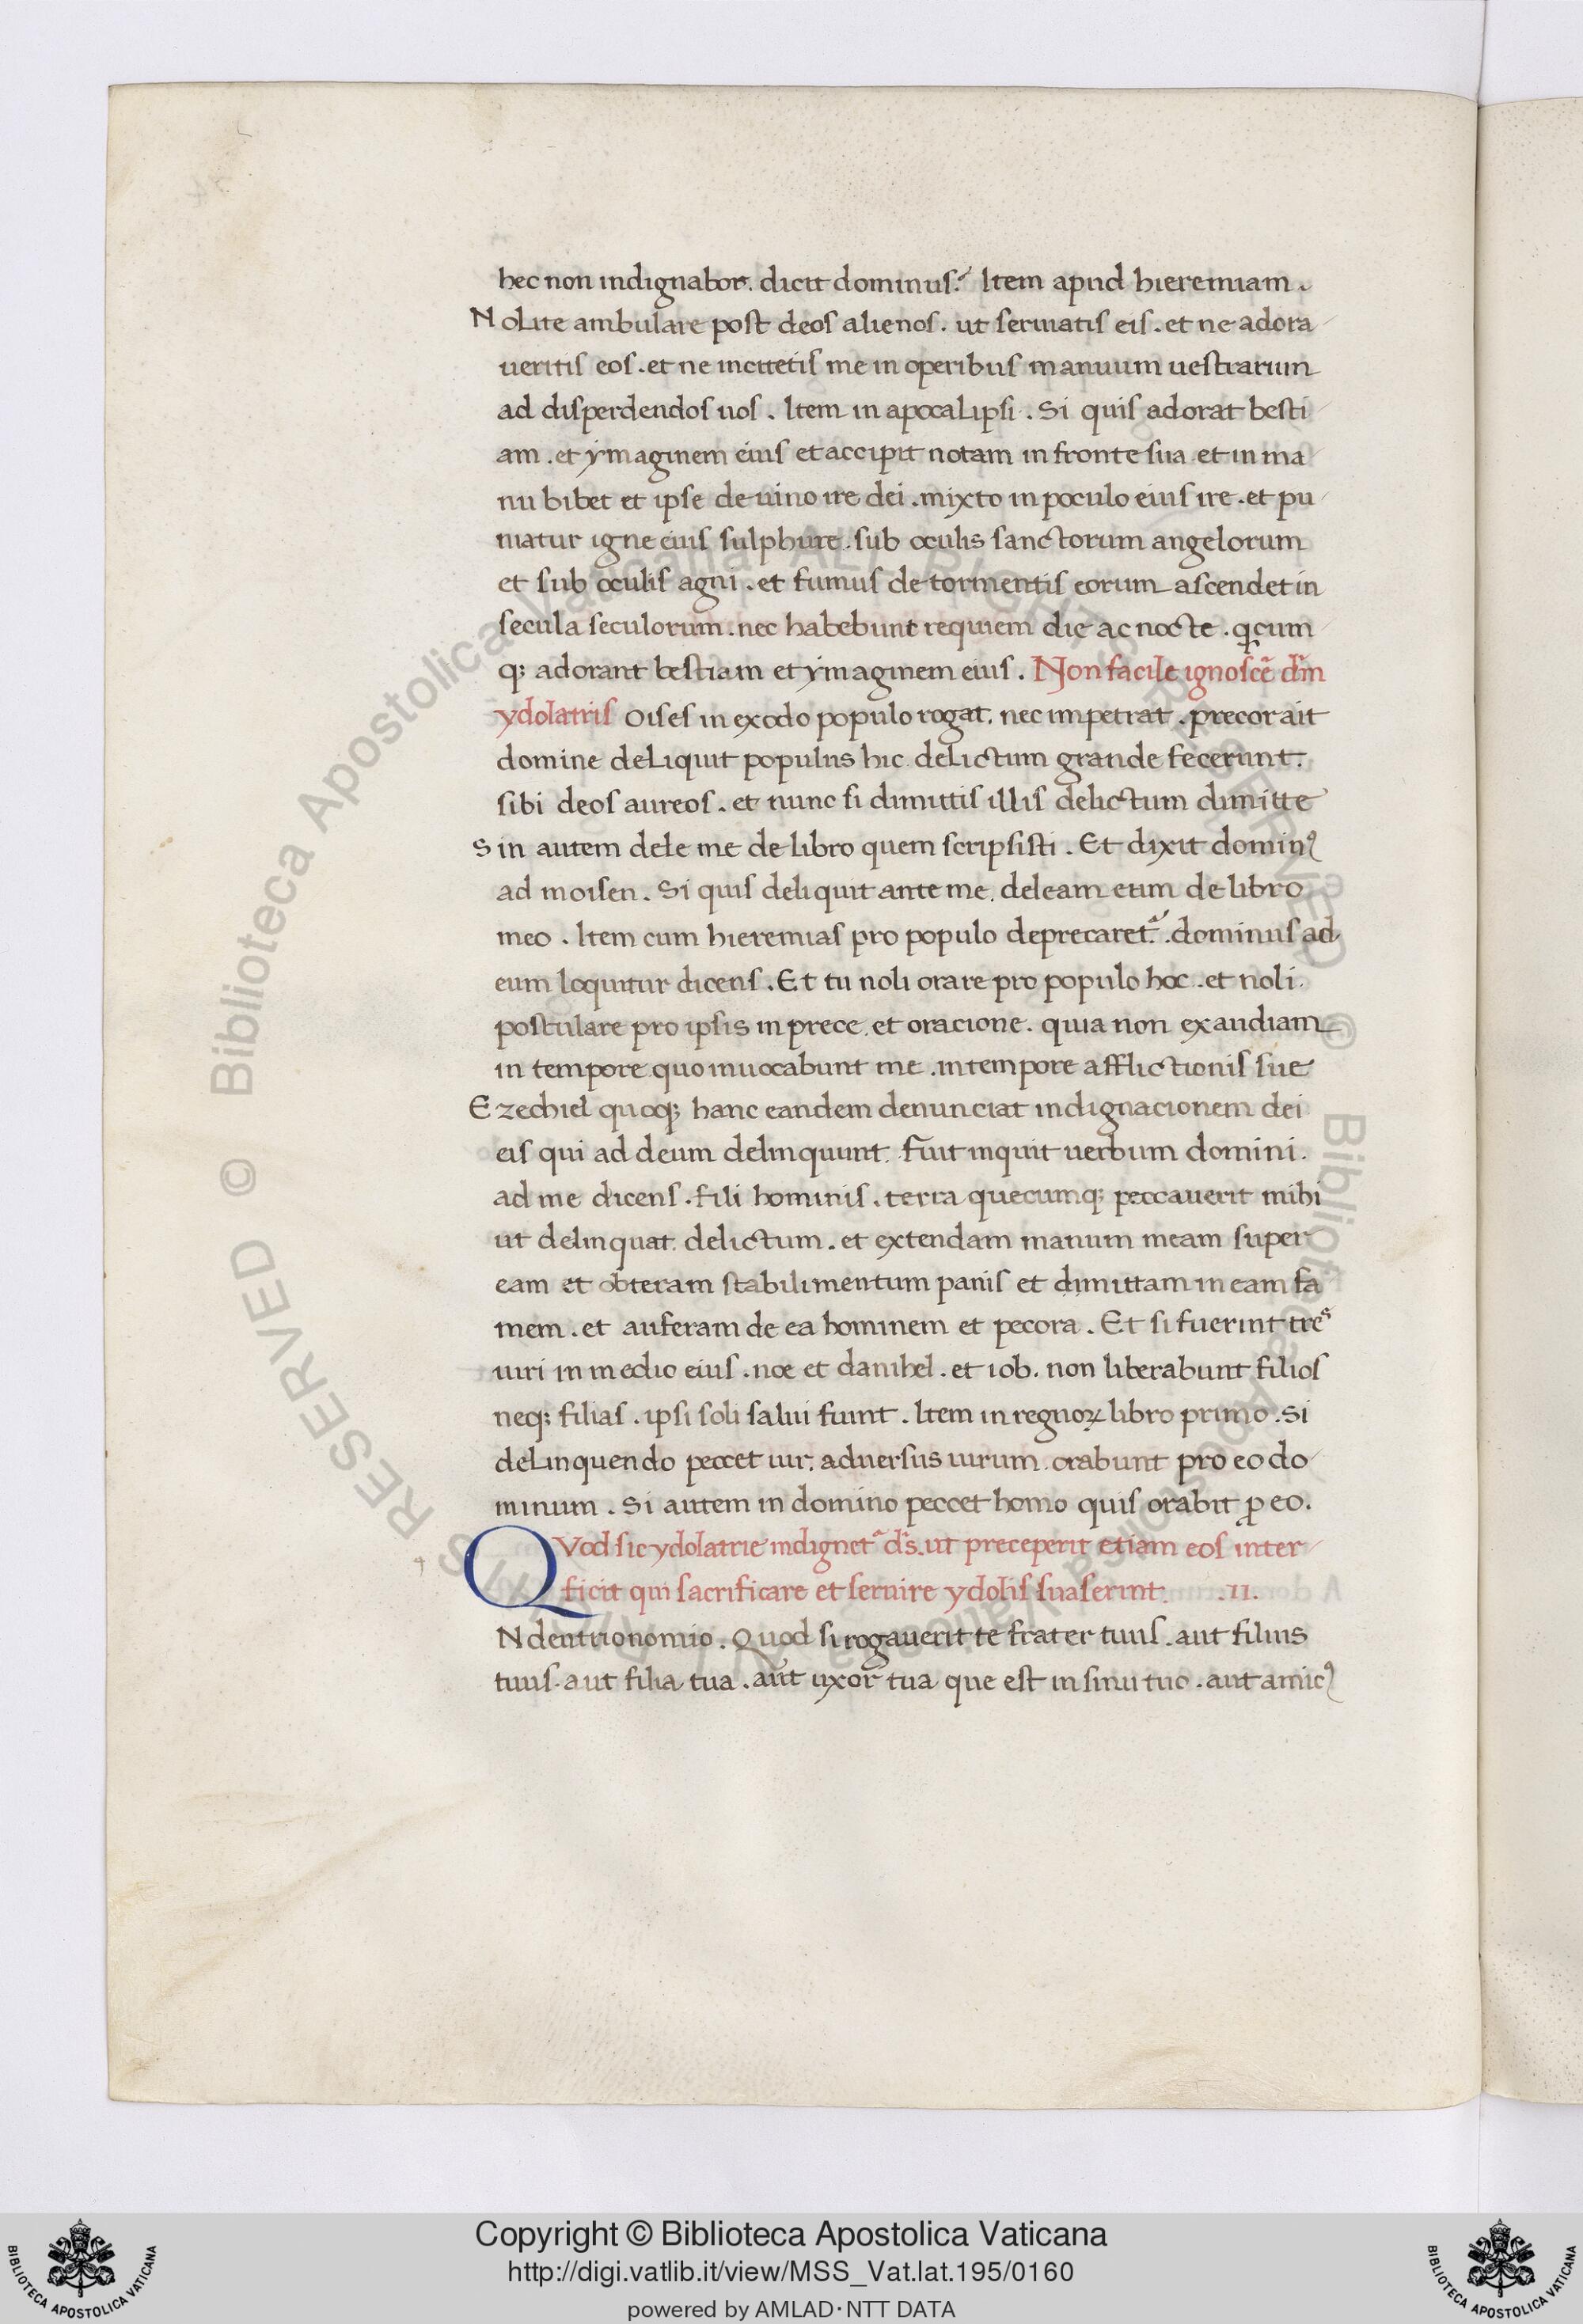 hec non indignabor. dicit dominus.᷎ Item apud hieremiam.
Nolite ambulare post deos alienos. ut seruiatis eis. et ne adora
ueritis eos. et ne incitetis me in operibus manuum uestrarum
ad disperdendos uos. Item in apocalipsi. Si quis adorat besti
am. et ymaginem eius et accipit notam in fronte sua et in ma
nu bibet et ipse de uino ire dei. mixto in poculo eius ire. et pu
niatur igne eius sulphure. sub oculis sanctorum angelorum
et sub oculis agni. et fumus de tormentis eorum ascendet in
secula seculorum. nec habebunt requiem die ac nocte. q̇cum
q; adorant bestiam et ymaginem eius. Non facile ignoscē dm̄
ydolatris oises in exodo populo rogat. nec impetrat. precor ait
domine deliquit populus hic delictum grande fecerunt.
sibi deos aureos. et nunc si dimittis illis delictum dimitte
Sin autem dele me de libro quem scripsisti. Et dixit dominꝰ
ad moisen. Si quis deliquit ante me. deleam eum de libro
meo. Item cum hieremias pro populo deprecaret᷑. dominus ad
eum loquitur dicens. Et tu noli orare pro populo hoc. et noli
postulare pro ipsis in prece et oracione. quia non exaudiam
in tempore quo inuocabunt me. in tempore afflictionis sue
Ezechiel quoq; hanc eandem denunciat indignacionem dei
eis qui ad deum delinquunt. Fuit inquit uerbum domini.
ad me dicens. fili hominis. terra quecumq; peccauerit mihi
ut delinquat delictum. et extendam manum meam super
eam et obteram stabilimentum panis et dimittam in eam fa
mem. et auferam de ea hominem et pecora. Et si fuerint tres
uiri in medio eius. noe et danihel. et iob. non liberabunt filios
neq; filias. ipsi soli salui fiunt. Item in regnoꝝ libro primo. Si
delinquendo peccet uir. aduersus uirum. orabunt pro eo do
minum. Si autem in domino peccet homo quis orabit ꝑ eo.
QVod sic ydolatrie indignet᷑ ds̄. ut preceperit etiam eos inter
ficit qui sacrificare et seruire ydolis suaserint. .II.
N deutrionomio. Quod si rogauerit te frater tuus. aut filius
tuus. aut filia tua. aut uxor tua que est in sinu tuo. aut amicꝰ
© Biblioteca Apostolica Vaticana ALL RIGHTS RESERVED © Biblioteca Apostolica Vaticana ALL RIGHTS RESERVED
Copyright © Biblioteca Apostolica Vaticana
http://digi.vatlib.it/view/MSS_Vat.lat.195/0160
powered by AMLAD·NTT DATA
BIBLIOTECA APOSTOLICA VATICANA
BIBLIOTECA APOSTOLICA VATICANA